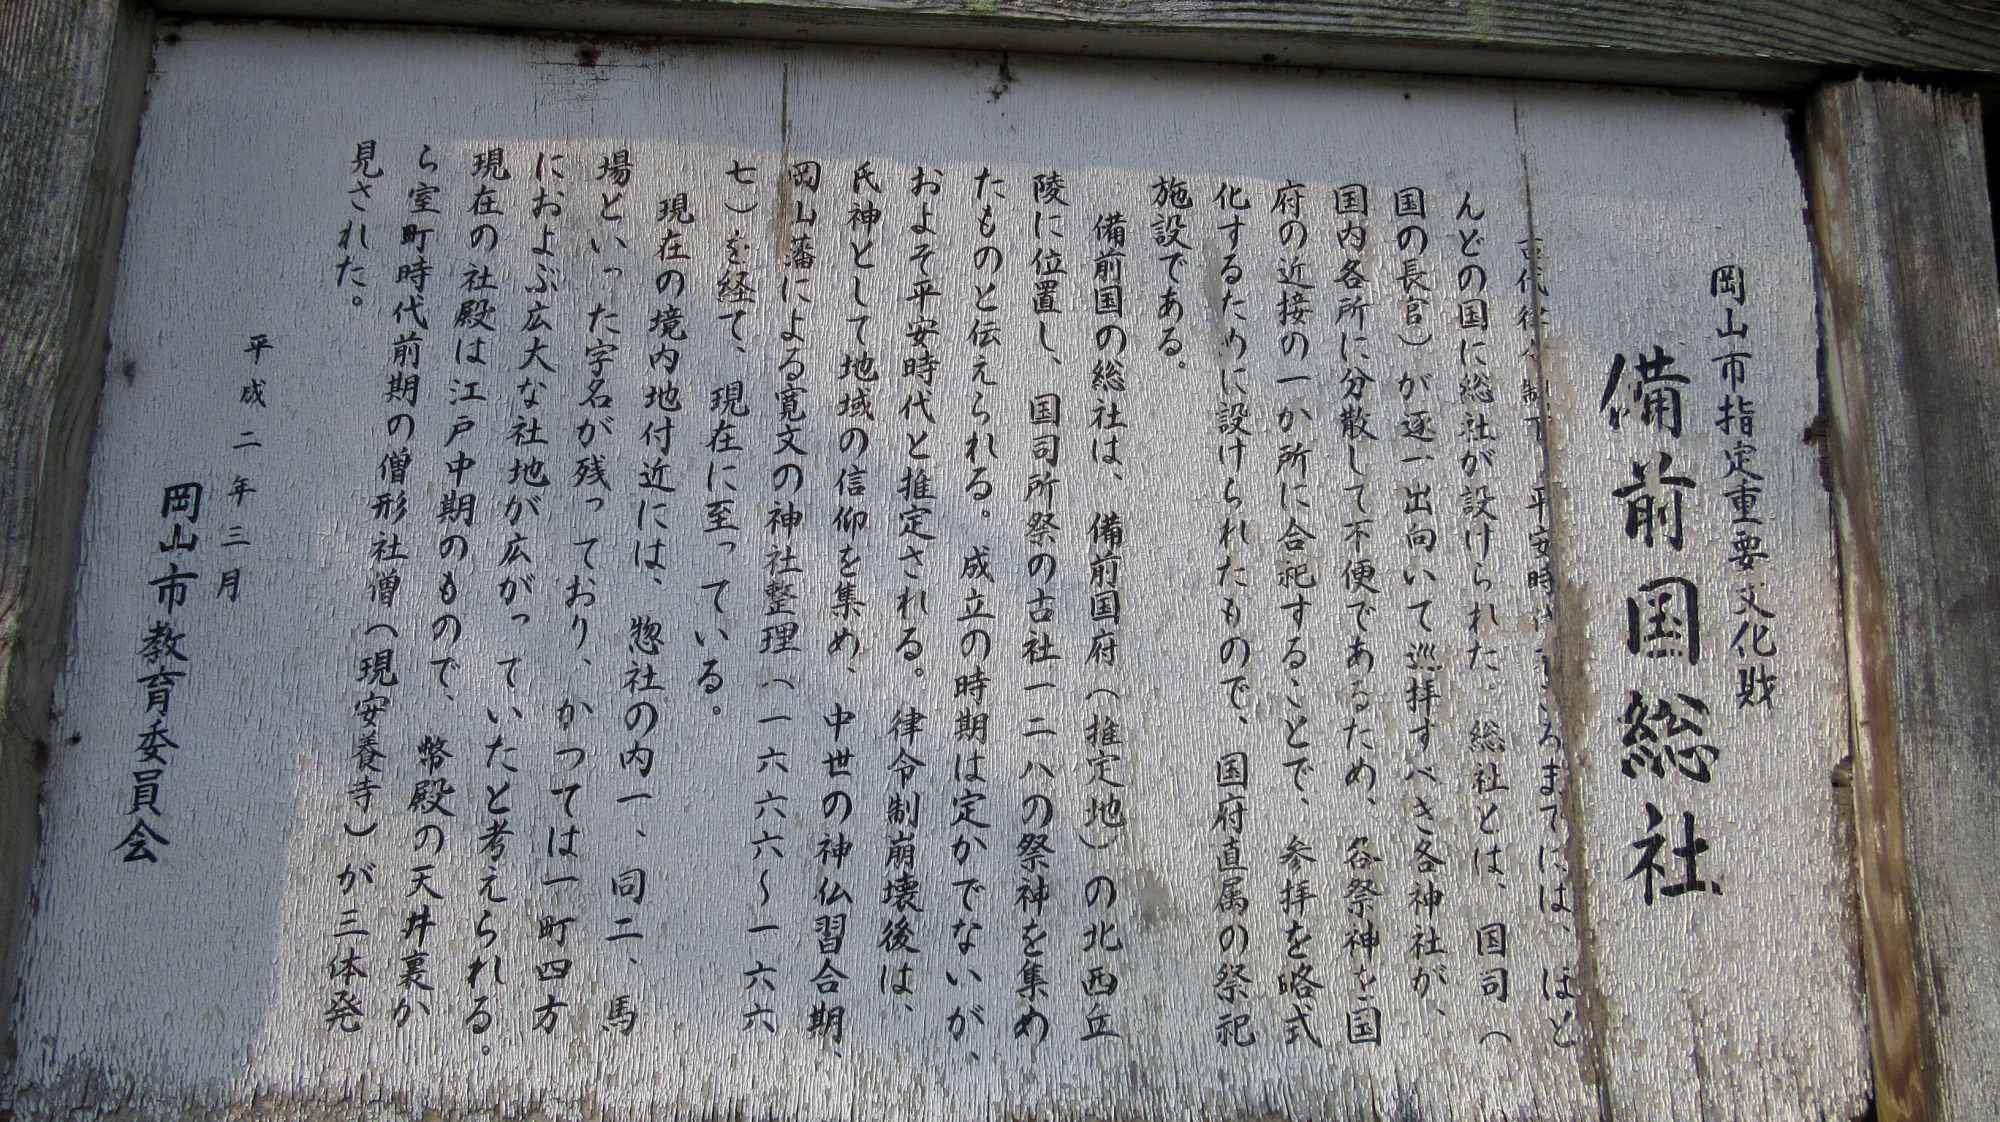 岡山市指定重要文化財
備前国総社
古代律令制下の平安時代ごろまでには、ほと
んどの国に総社が設けられた。総社とは、国司(
国の長官)が逐一出向いて巡拝すべき各神社が、
国内各所に分散して不便であるため、各祭神を国
府の近接の一か所に合祀することで、参拝を略式
化するために設けられたもので、国府直属の祭祀
施設である。
備前国の総社は、備前国府(推定地)の北西丘
陵に位置し、国司所祭の古社一二八の祭神を集め
たものと伝えられる。成立の時期は定かでないが、
およそ平安時代と推定される。律令制崩壊後は、
氏神として地域の信仰を集め、中世の神仏習合期、
岡山藩による寛文の神社整理(一六六六〜一六六
七)を経て、現在に至っている。
現在の境内地付近には、惣社の内一、同二、馬
場といった字名が残っており、かつては一町四方
におよぶ広大な社地が広がっていたと考えられる。
現在の社殿は江戸中期のもので、幣殿の天井裏か
ら室町時代前期の僧形社僧(現安養寺)が三体発
見された。
平成二年三月
岡山市教育委員会